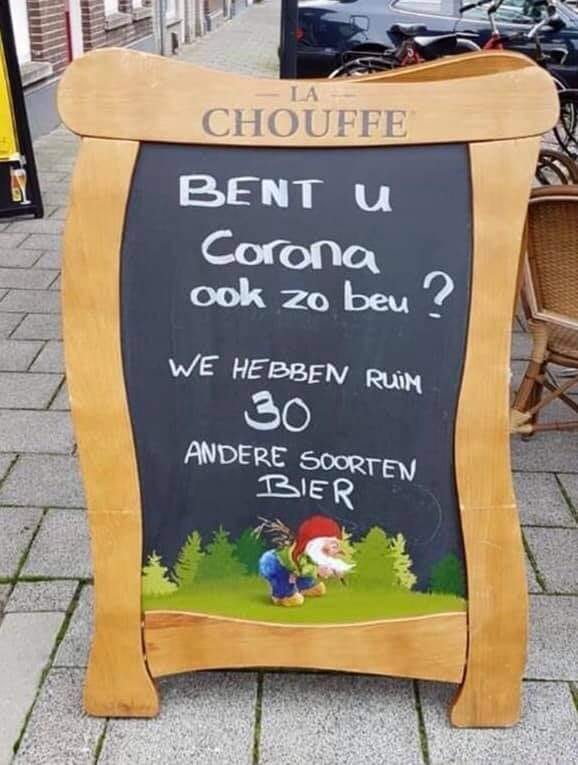 LA
CHOUFFE
BENT U
Corona
ook zo beu ?
WE HEBBEN RUIM
30
ANDERE SOORTEN
BIER